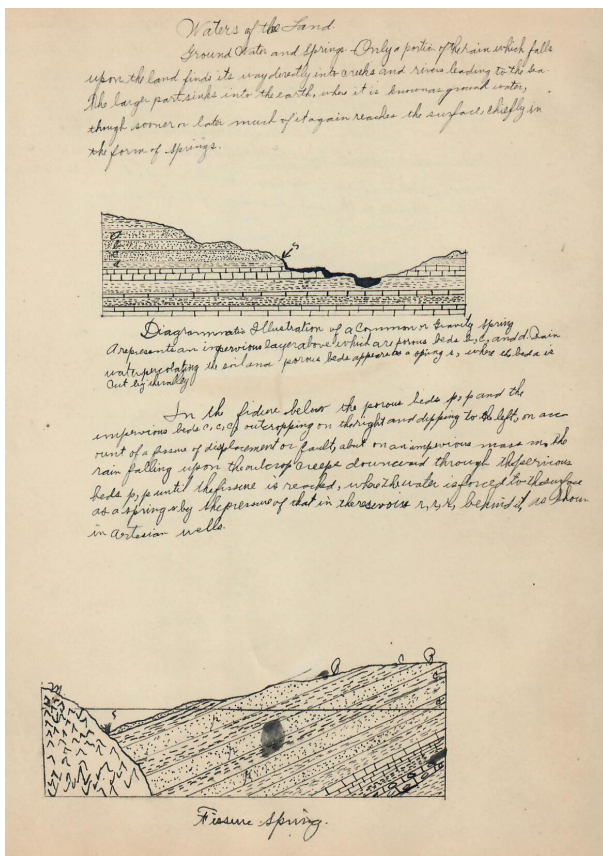 Waters of the Land
Ground Water and Springs - Only a portion of the rain which falls
upon the land finds its way directly into creeks and rivers leading to the sea
The larger part sinks into the earth, where it is known as ground water,
though sooner or later much of it again reaches the surface, chiefly in
the form of springs.
s
d
c
b
a
Diagrammatic Illustration of a Common or Gravity Spring
A represents an impervious layer above which are porous beds b, c, and d. Rain
water percolating the soil and porous beds appears as a spring s, where the bed a is
cut by the valley
In the fidure below the porous beds p, p and the
impervious beds c, c, c, outcropping on the right and dipping to the left, on acc-
ount of a fissure of displacement or fault, abut on an impervious mass m, the
rain falling upon the outcrop creeps downward through the pervious
beds p, p until the fissure is reached, when the water is forced to the surface
as a spring s by the pressure of that in the reservoirs r, r, r, behind it, as shown
in artesian wells.
m
s
P
C
P
Fissure Spring.